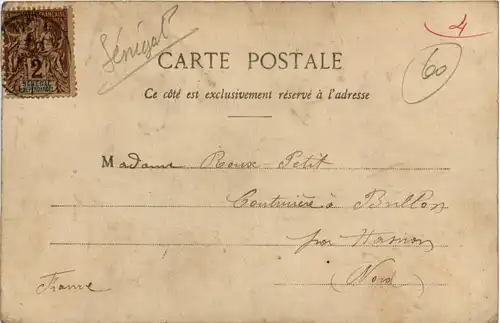 Sénégal
4
60
2
CARTE POSTALE
Ce côté est exclusivement réservé à l'adresse
Madame Roux-Petit
Couturière à Brillon
par Hasnon
(Nord)
France